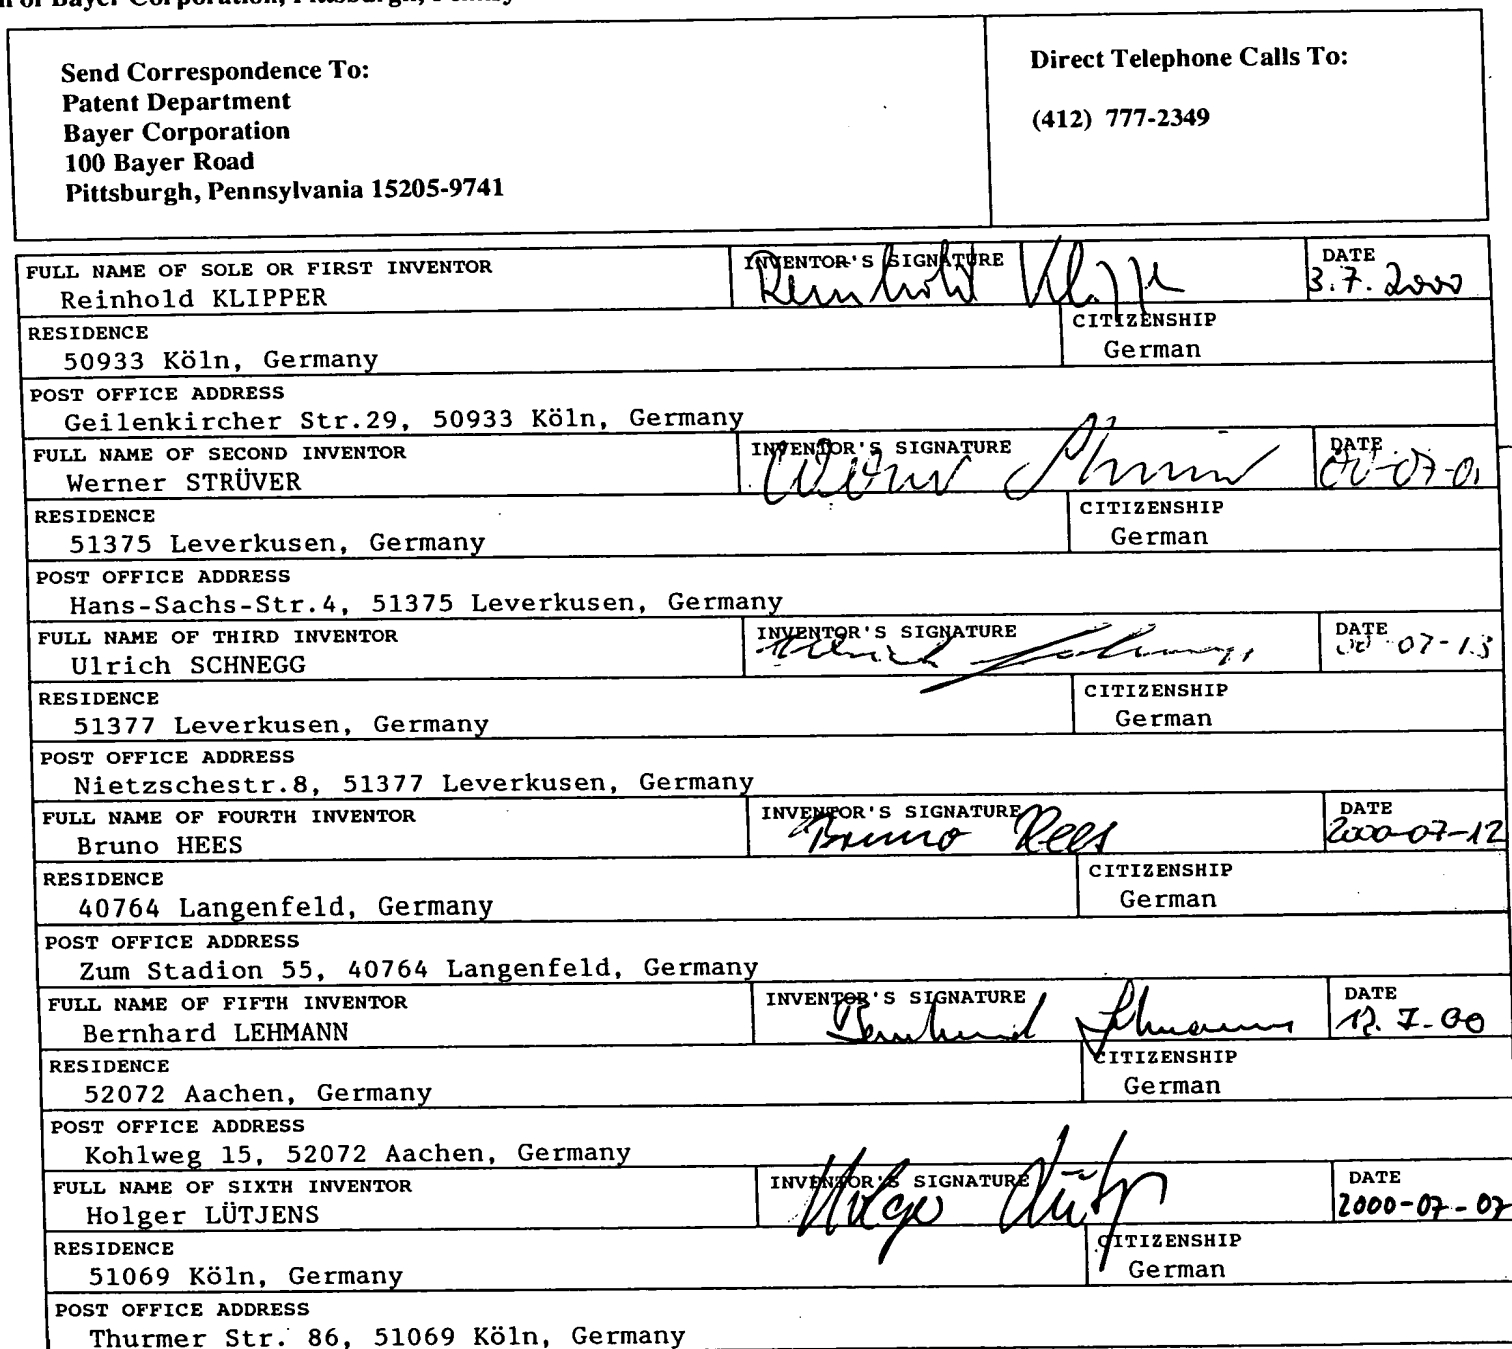 of Bayer Corporation, Pittsburgh,
Send Correspondence To:
Patent Department
Bayer Corporation
100 Bayer Road
Pittsburgh, Pennsylvania 15205-9741
Direct Telephone Calls To:
(412) 777-2349
FULL NAME OF SOLE OR FIRST INVENTOR
Reinhold KLIPPER
INVENTOR'S SIGNATURE
Reinhold Klipper
DATE
3.7.2000
RESIDENCE
50933 Köln, Germany
CITIZENSHIP
German
POST OFFICE ADDRESS
Geilenkircher Str.29, 50933 Köln, Germany
FULL NAME OF SECOND INVENTOR
Werner STRÜVER
INVENTOR'S SIGNATURE
Werner Strüver
DATE
RESIDENCE
51375 Leverkusen, Germany
CITIZENSHIP
German
POST OFFICE ADDRESS
Hans-Sachs-Str.4, 51375 Leverkusen, Germany
FULL NAME OF THIRD INVENTOR
Ulrich SCHNEGG
INVENTOR'S SIGNATURE
Ulrich Schnegg
DATE
00-07-13
RESIDENCE
51377 Leverkusen, Germany
CITIZENSHIP
German
POST OFFICE ADDRESS
Nietzschestr.8, 51377 Leverkusen, Germany
FULL NAME OF FOURTH INVENTOR
Bruno HEES
INVENTOR'S SIGNATURE
Bruno Hees
DATE
2000-07-12
RESIDENCE
40764 Langenfeld, Germany
CITIZENSHIP
German
POST OFFICE ADDRESS
Zum Stadion 55, 40764 Langenfeld, Germany
FULL NAME OF FIFTH INVENTOR
Bernhard LEHMANN
INVENTOR'S SIGNATURE
Bernhard Lehmann
DATE
12.7.00
RESIDENCE
52072 Aachen, Germany
CITIZENSHIP
German
POST OFFICE ADDRESS
Kohlweg 15, 52072 Aachen, Germany
FULL NAME OF SIXTH INVENTOR
Holger LÜTJENS
INVENTOR'S SIGNATURE
Holger Lütj
DATE
2000-07-07
RESIDENCE
51069 Köln, Germany
CITIZENSHIP
German
POST OFFICE ADDRESS
Thurmer Str. 86, 51069 Köln, Germany